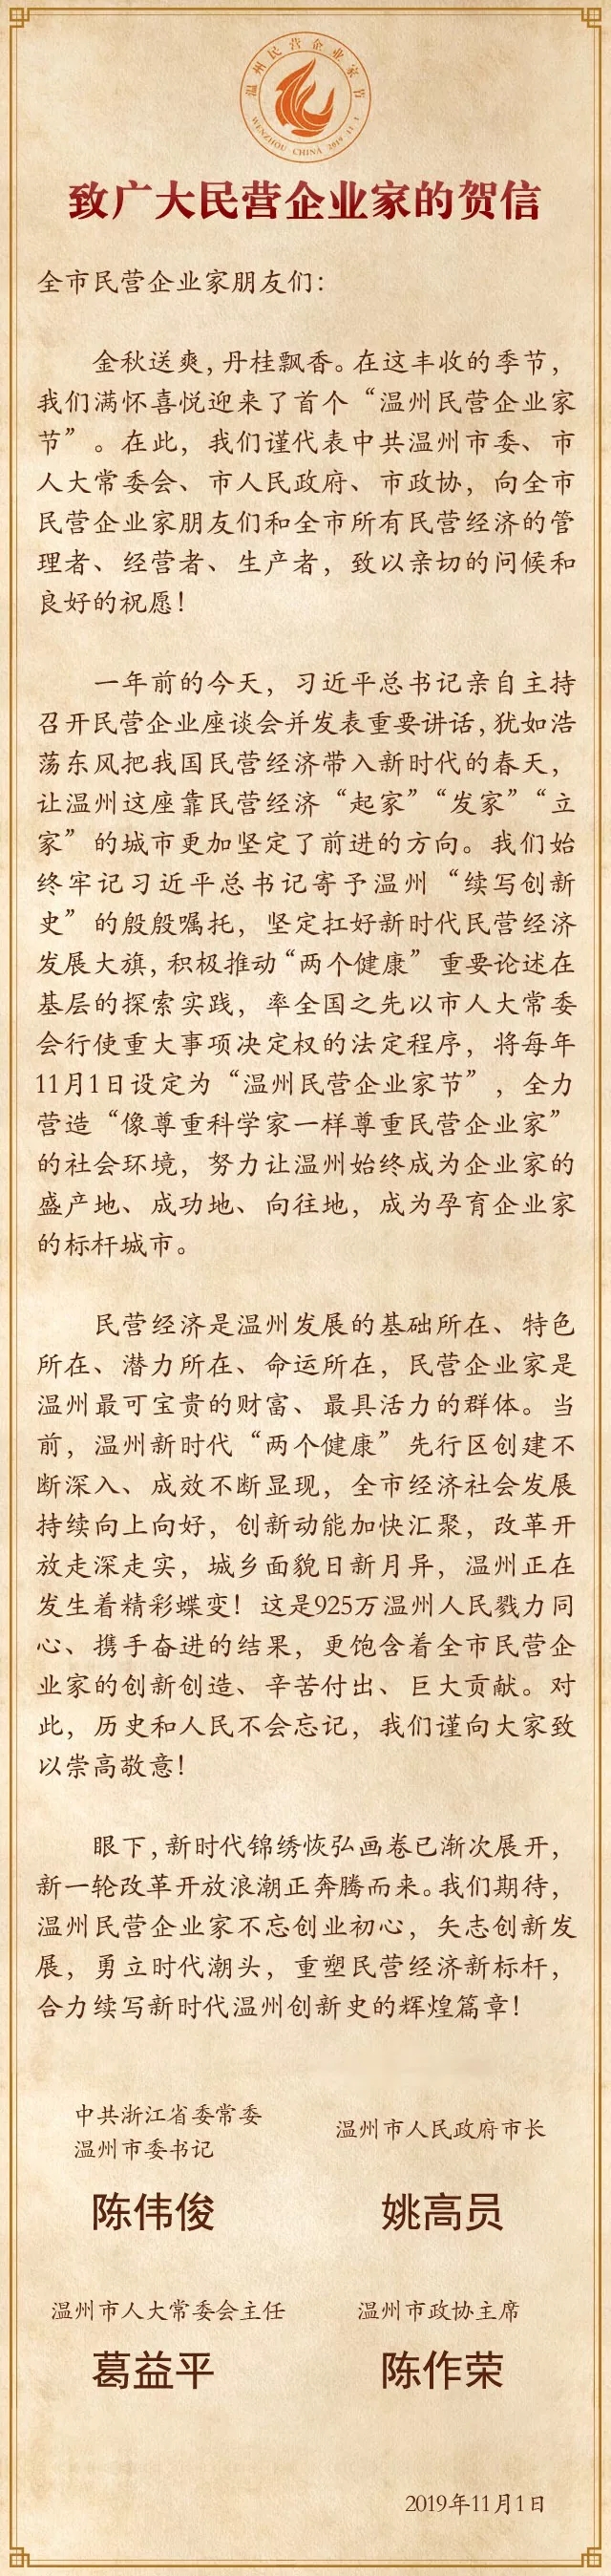 温州民营企业家节
WENZHOU CHINA 2019.11.1
致广大民营企业家的贺信
全市民营企业家朋友们：
金秋送爽，丹桂飘香。在这丰收的季节，
我们满怀喜悦迎来了首个“温州民营企业家
节”。在此，我们谨代表中共温州市委、市
人大常委会、市人民政府、市政协，向全市
民营企业家朋友们和全市所有民营经济的管
理者、经营者、生产者，致以亲切的问候和
良好的祝愿！
一年前的今天，习近平总书记亲自主持
召开民营企业座谈会并发表重要讲话，犹如浩
荡东风把我国民营经济带入新时代的春天，
让温州这座靠民营经济“起家”“发家”“立
家”的城市更加坚定了前进的方向。我们始
终牢记习近平总书记寄予温州“续写创新
史”的殷殷嘱托，坚定扛好新时代民营经济
发展大旗，积极推动“两个健康”重要论述在
基层的探索实践，率全国之先以市人大常委
会行使重大事项决定权的法定程序，将每年
11月1日设定为“温州民营企业家节”，全力
营造“像尊重科学家一样尊重民营企业家”
的社会环境，努力让温州始终成为企业家的
盛产地、成功地、向往地，成为孕育企业家
的标杆城市。
民营经济是温州发展的基础所在、特色
所在、潜力所在、命运所在，民营企业家是
温州最可宝贵的财富、最具活力的群体。当
前，温州新时代“两个健康”先行区创建不
断深入、成效不断显现，全市经济社会发展
持续向上向好，创新动能加快汇聚，改革开
放走深走实，城乡面貌日新月异，温州正在
发生着精彩蝶变！这是925万温州人民戮力同
心、携手奋进的结果，更饱含着全市民营企
业家的创新创造、辛苦付出、巨大贡献。对
此，历史和人民不会忘记，我们谨向大家致
以崇高敬意！
眼下，新时代锦绣恢弘画卷已渐次展开，
新一轮改革开放浪潮正奔腾而来。我们期待，
温州民营企业家不忘创业初心，矢志创新发
展，勇立时代潮头，重塑民营经济新标杆，
合力续写新时代温州创新史的辉煌篇章！
中共浙江省委常委
温州市委书记
陈伟俊
温州市人民政府市长
姚高员
温州市人大常委会主任
葛益平
温州市政协主席
陈作荣
2019年11月1日